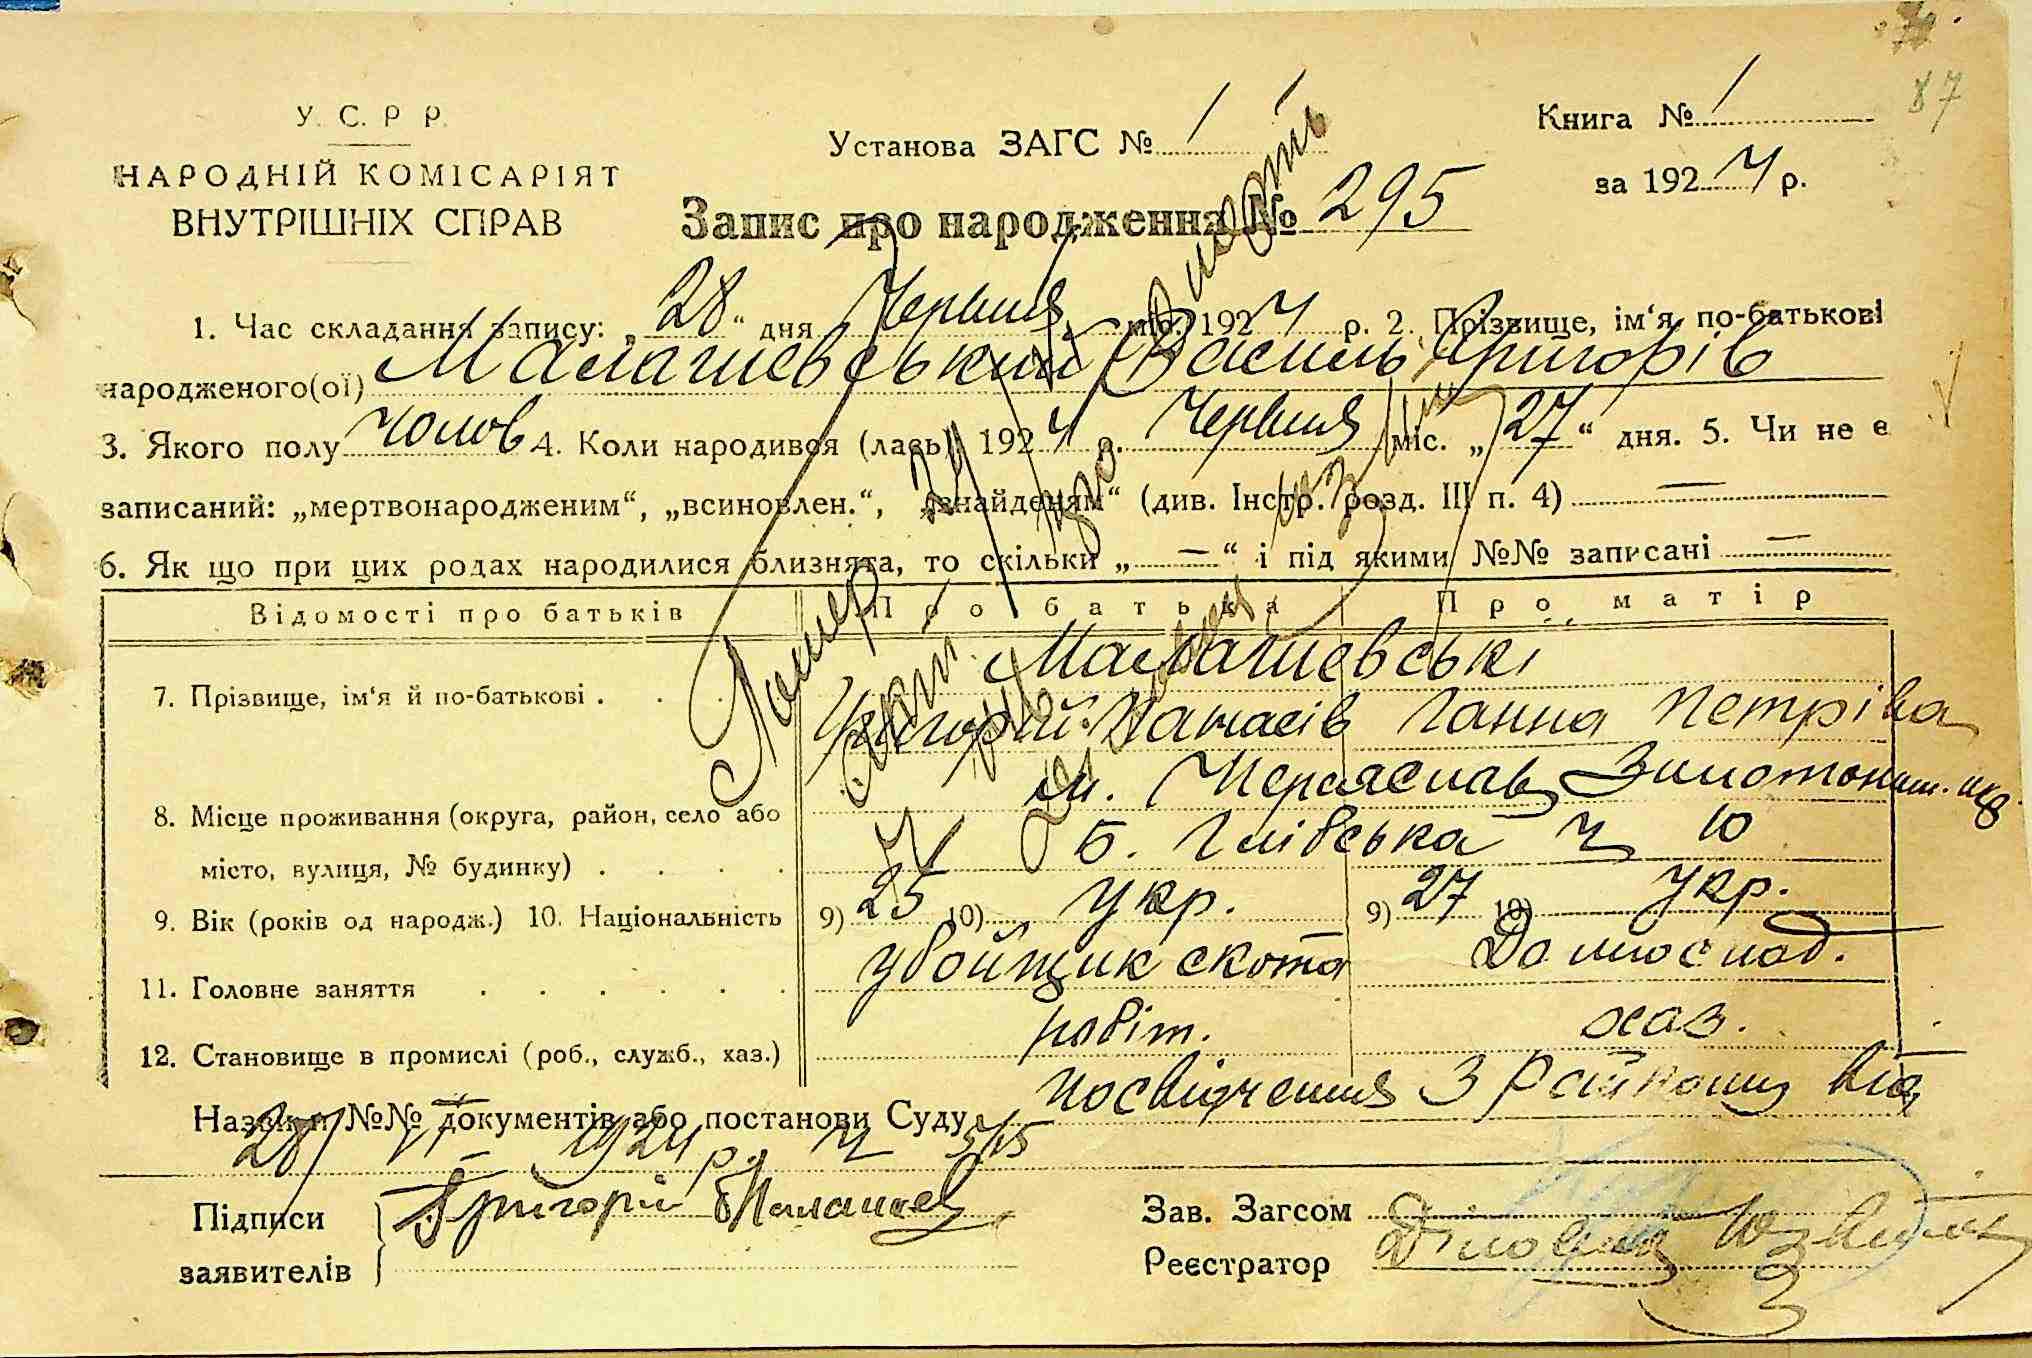 87
У. С. Р. Р.
НАРОДНІЙ КОМІСАРІЯТ
ВНУТРІШНІХ СПРАВ
Установа ЗАГС № 1
Книга № 1
за 1924 р.
Запис про народження № 295
1. Час складання запису: „28“ дня Червня міс. 1924 р. 2. Прізвище, ім‘я по-батькові
народженого(ої) Малашевський Василь Григорів
3. Якого полу чолов 4. Коли народився (лась) 1924 р. Червня міс. „27“ дня. 5. Чи не є
записаний: „мертвонародженим“, „всиновлен.“, „знайденям“ (див. Інстр. розд. III п. 4) —
6. Як що при цих родах народилися близнята, то скільки „—“ і під якими №№ записані —
Відомості про батьків Про батька Про матір
Малашевські
7. Прізвище, ім‘я й по-батькові . . . Григорій Панасів Ганна Петрівна
м. Переяслав Золотоніш. окр.
8. Місце проживання (округа, район, село або
місто, вулиця, № будинку) . . . . Б. Глібська ч 10
9. Вік (років од народж.) 10. Національність 9) 25 10) укр. 9) 27 10) укр.
11. Головне заняття . . . . . . убойщик скота Домогоспод.
12. Становище в промислі (роб., служб., хаз.) робіт. хаз.
Назва й №№ документів або постанови Суду посвідчення з Райкому від
28/VI 1924 р. ч
Підписи заявителів Григорій Малашев
Зав. Загсом
Реєстратор
Помер